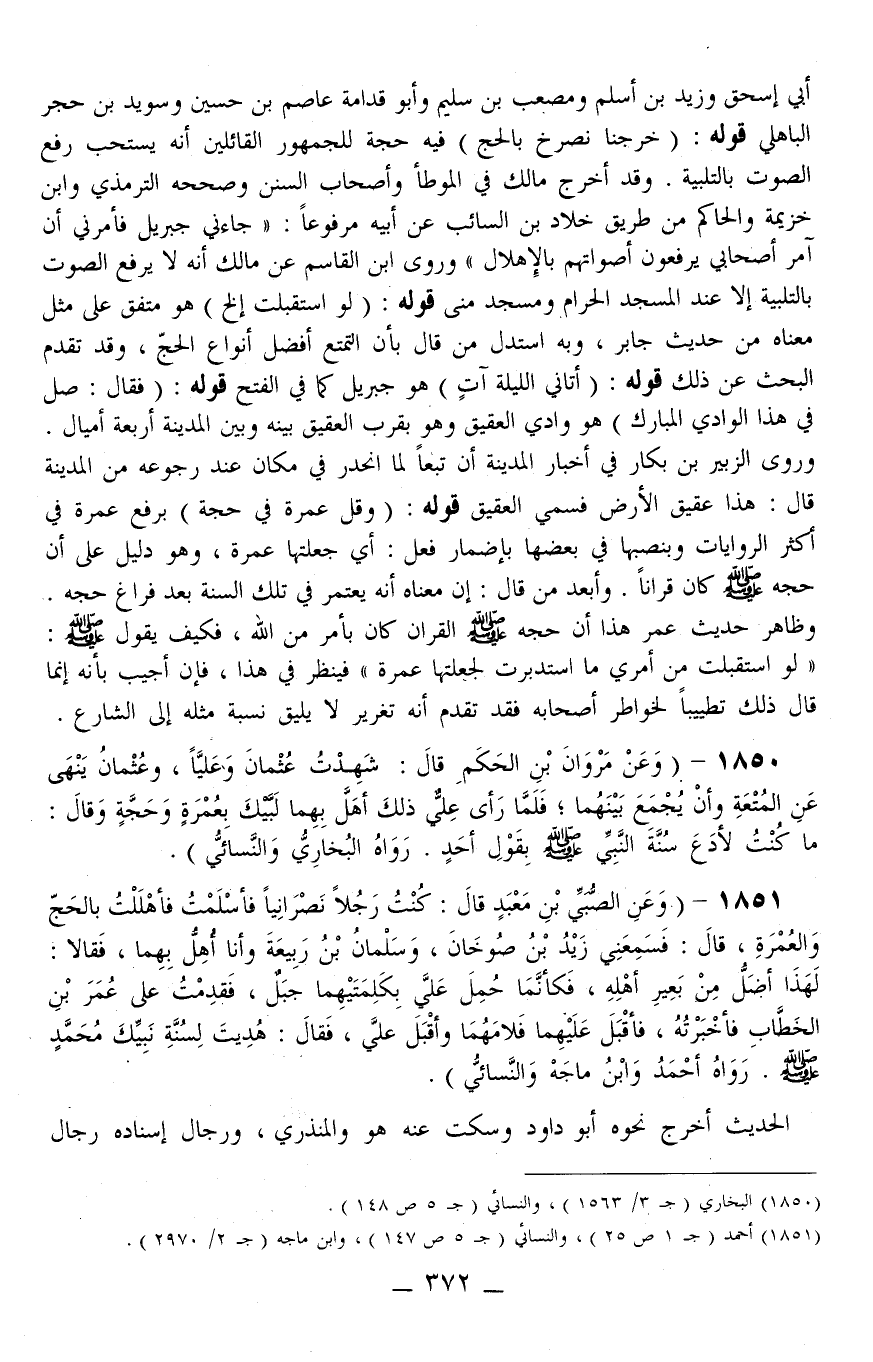 أبي إسحق وزيد بن أسلم ومصعب بن سليم وأبو قدامة عاصم بن حسين وسويد بن حجر
الباهلي قوله : ( خرجنا نصرخ بالحج ) فيه حجة للجمهور القائلين أنه يستحب رفع
الصوت بالتلبية . وقد أخرج مالك في الموطأ وأصحاب السنن وصححه الترمذي وابن
خزيمة والحاكم من طريق خلاد بن السائب عن أبيه مرفوعاً : « جاءني جبريل فأمرني أن
آمر أصحابي يرفعون أصواتهم بالإهلال » وروى ابن القاسم عن مالك أنه لا يرفع الصوت
بالتلبية إلا عند المسجد الحرام ومسجد منى قوله : ( لو استقبلت إلخ ) هو متفق على مثل
معناه من حديث جابر ، وبه استدل من قال بأن التمتع أفضل أنواع الحجّ ، وقد تقدم
البحث عن ذلك قوله : ( أتاني الليلة آتٍ ) هو جبريل كما في الفتح قوله : ( فقال : صل
في هذا الوادي المبارك ) هو وادي العقيق وهو بقرب العقيق بينه وبين المدينة أربعة أميال .
وروى الزبير بن بكار في أخبار المدينة أن تبعاً لما انحدر في مكان عند رجوعه من المدينة
قال : هذا عقيق الأرض فسمي العقيق قوله : ( وقل عمرة في حجة ) برفع عمرة في
أكثر الروايات وبنصبها في بعضها بإضمار فعل : أي جعلتها عمرة ، وهو دليل على أن
حجه ﷺ كان قراناً . وأبعد من قال : إن معناه أنه يعتمر في تلك السنة بعد فراغ حجه .
وظاهر حديث عمر هذا أن حجه ﷺ القران كان بأمر من الله ، فكيف يقول ﷺ :
« لو استقبلت من أمري ما استدبرت لجعلتها عمرة » فينظر في هذا ، فإن أجيب بأنه إنما
قال ذلك تطييباً لخواطر أصحابه فقد تقدم أنه تغرير لا يليق نسبة مثله إلى الشارع .
١٨٥٠ – ( وَعَنْ مَرْوَانَ بْنِ الحَكَمِ قالَ : شَهِدْتُ عُثْمانَ وَعَليَّاً ، وعُثْمانُ يَنْهَى
عَنِ المُتْعَةِ وأنْ يُجْمَعَ بَيْنَهُما ؛ فَلَمَّا رَأى عِليٌّ ذلكَ أهَلَّ بِهِما لَبَّيْكَ بِعُمْرَةٍ وَحَجَّةٍ وَقالَ :
ما كُنْتُ لأدَعَ سُنَّةَ النَّبِيِّ ﷺ بِقَوْلِ أحَدٍ . رَوَاهُ البُخارِيُّ وَالنَّسائيُّ ) .
١٨٥١ – ( وَعَنِ الصُّبَيِّ بْنِ مَعْبَدٍ قالَ : كُنْتُ رَجُلاً نَصْرَانِياً فأسْلَمْتُ فأهْلَلْتُ بالحَجّ
وَالعُمْرَةِ ، قالَ : فَسَمِعَنِي زَيْدُ بْنُ صُوخَانَ ، وَسَلْمانُ بْنُ رَبِيعَةَ وأنا أُهِلُّ بِهِما ، فَقالا :
لَهَذَا أضَلُّ مِنْ بَعِيرِ أهْلِهِ ، فَكأنَّمَا حُمِلَ عَلَيَّ بِكَلِمَتَيْهِما جبَلٌ ، فَقدِمْتُ على عُمَرَ بْنِ
الخَطَّابِ فأخْبَرْتُهُ ، فأقْبَلَ عَلَيْهِما فَلامَهُمَا وأقْبَلَ عليَّ ، فَقالَ : هُدِيتَ لِسُنَّةِ نَبِيِّكَ مُحَمَّدٍ
ﷺ . رَوَاهُ أحْمَدُ وَابْنُ ماجَهْ وَالنَّسائيُّ ) .
الحديث أخرج نحوه أبو داود وسكت عنه هو والمنذري ، ورجال إسناده رجال
(١٨٥٠) البخاري ( جـ ٣/ ١٥٦٣ ) ، والنسائي ( جـ ٥ ص ١٤٨ ) .
(١٨٥١) أحمد ( جـ ١ ص ٢٥ ) ، والنسائي ( جـ ٥ ص ١٤٧ ) ، وابن ماجه ( جـ ٢/ ٢٩٧٠ ) .
— ٣٧٢ —